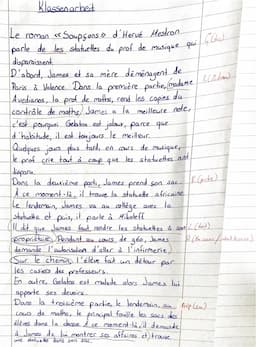 Klassenarbeit
Le roman «Soupçons» d'Hervé Mestron
parle de les statuettes du prof de musique qui
disparaissent.
D'abord, James et sa mère déménagent de
Paris à Valence. Dans la première partie, madame
Avedianos, la prof de maths, rend les copies du
contrôle de maths. James a la meilleure note,
c'est pourquoi Gelatos est jaloux, parce que
d'habitude, il est toujours le meilleur.
Quelques jours plus tard, en cours de musique,
le prof crie tout à coup que les statuettes ont
disparu.
Dans la deuxième partie, James prend son sac.
A ce moment-là, il trouve la statuette africaine.
Le lendemain, James va au collège avec la
statuette et puis, il parle à
Il dit que James faut rendre les statuettes à son
propriétaire. Pendant au cours de géo, James
demande l'autorisation d'aller à l'infirmerie.
Sur le chemin, l'élève fait un détour par
les casiers des professeurs.
En outre, Gelatos est malade alors James lui
apporte ses devoirs.
Dans la troisième partie, le lendemain, au
cours de maths, le principal fouille les sacs des
élèves dans la classe. A ce moment-là, il demande
à James de lui montrer ses affaires et trouve
une statuette dans son sac.